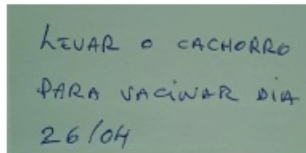 LEVAR O CACHORRO
PARA VACINAR DIA
26/04